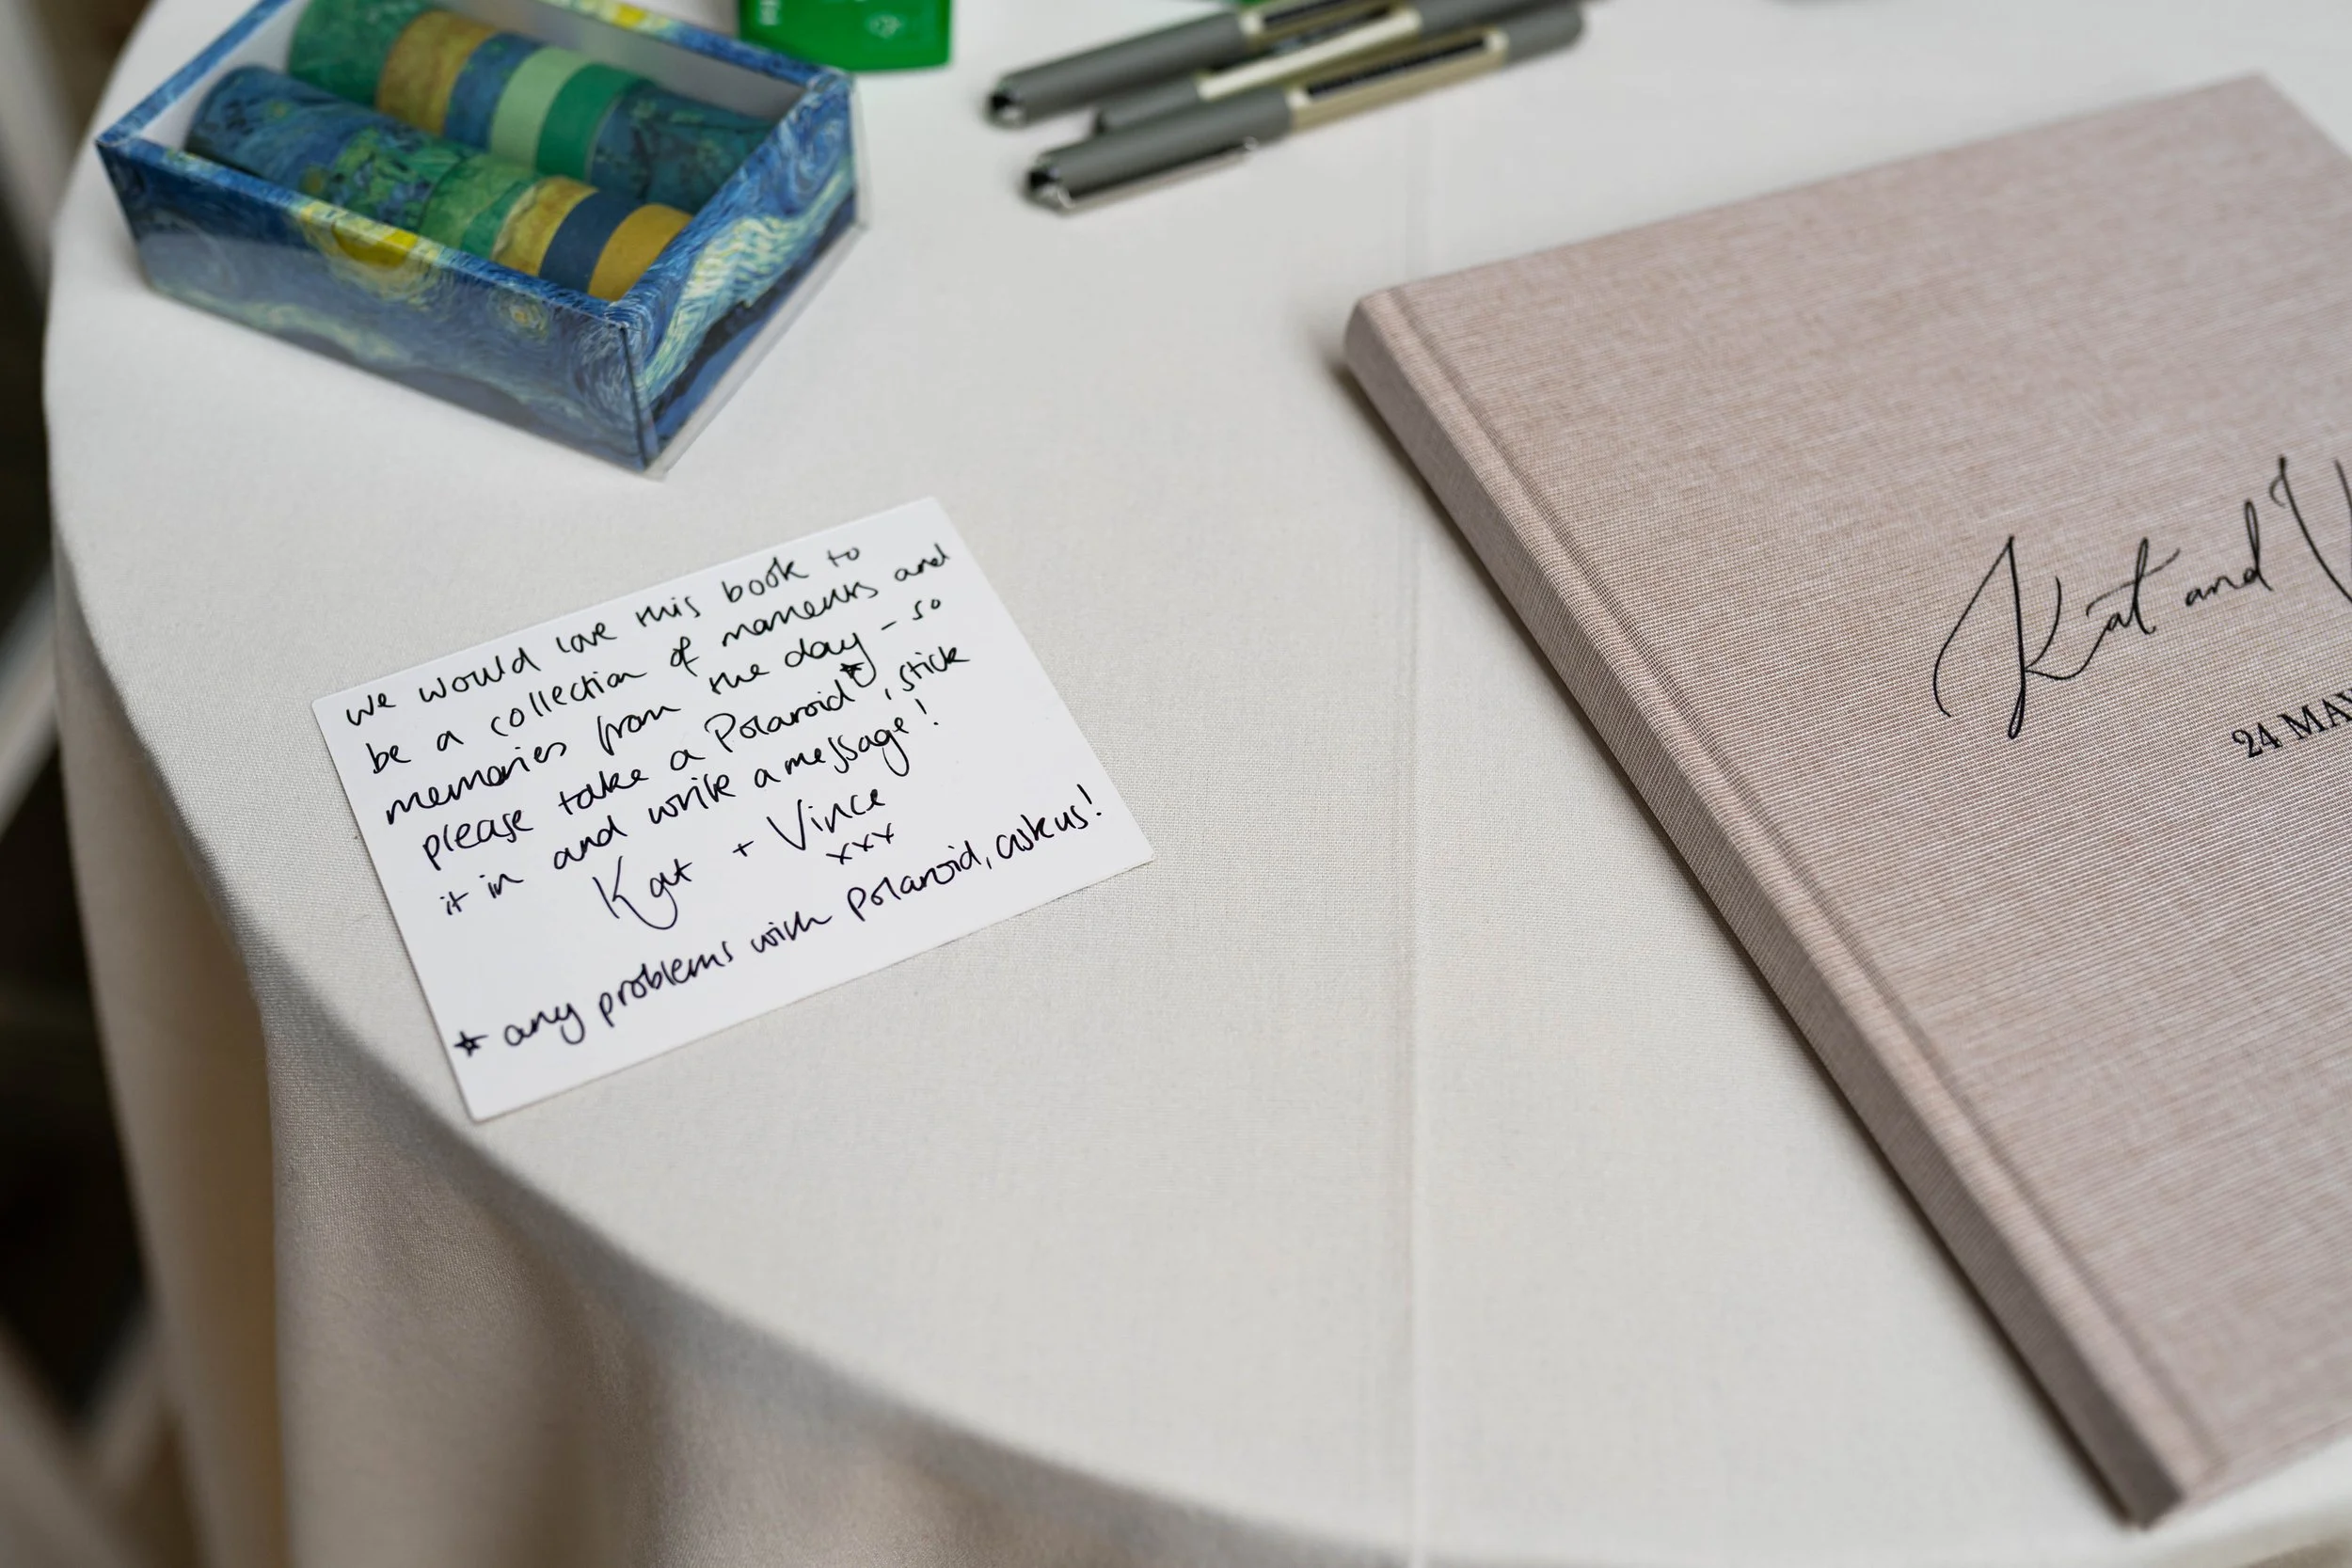 we would love this book to
be a collection of moments and
memories from the day - so
please take a Polaroid*, stick
it in and write a message!
Kat + Vince
xxx
* any problems with Polaroid, ask us!
Kat and V
24 MAY